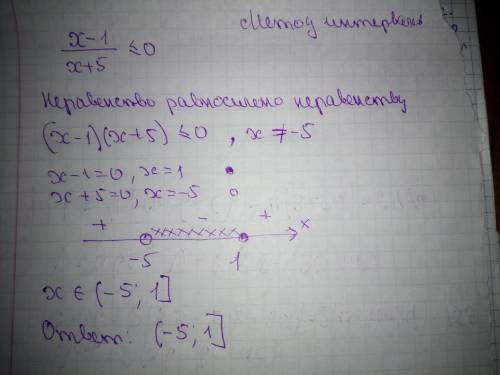 Метод интервалов
x-1
x+5 ≤0
Неравенство равносильно неравенству
(x-1)(x+5) ≤0 , x ≠ -5
x-1=0, x=1
x+5=0, x=-5
+ - + x
-5 1
x ∈ (-5; 1]
Ответ: (-5; 1]